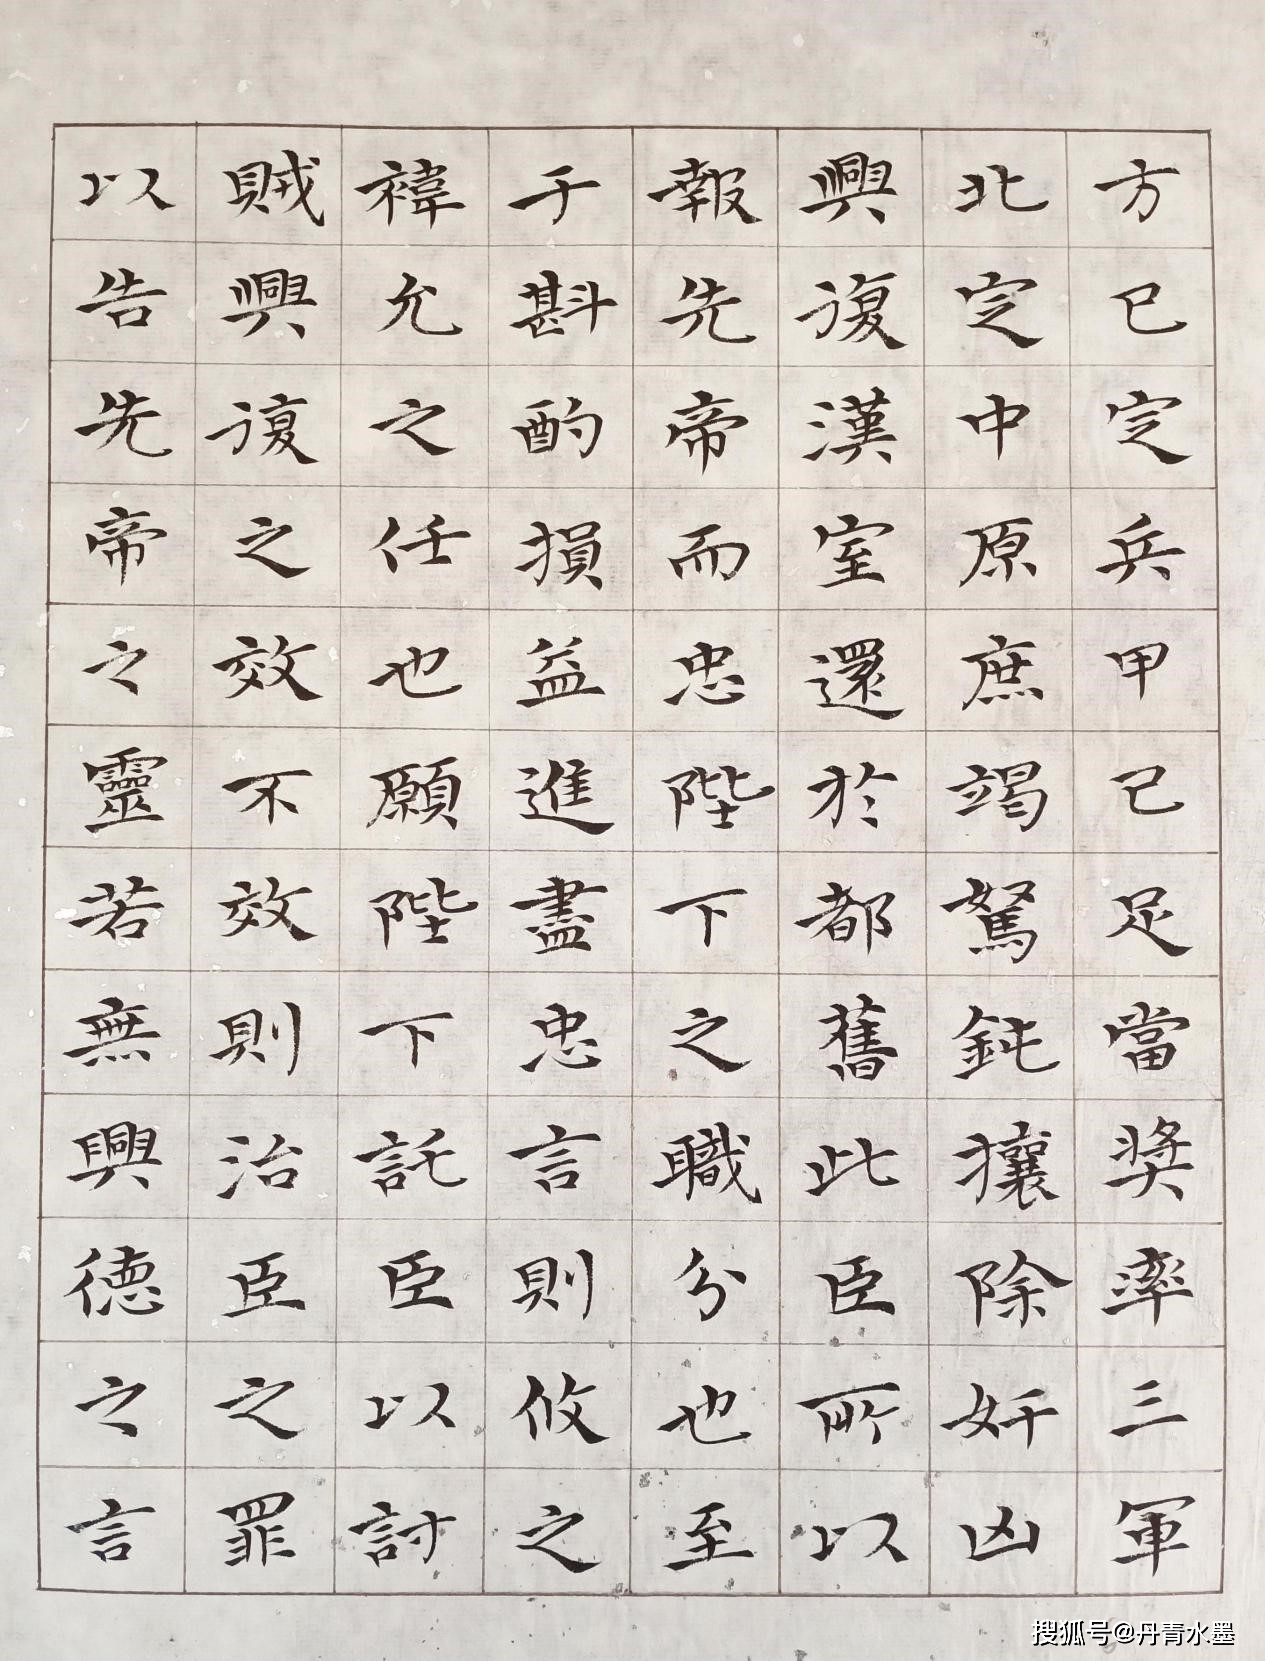 方已定兵甲已足當奨率三軍
北定中原庶竭駑鈍攘除奸凶
興復漢室還於都舊此臣所以
報先帝而忠陛下之職分也至
于斟酌損益進盡忠言則攸之
禕允之任也願陛下託臣以討
賊興復之效不效則治臣之罪
以告先帝之靈若無興德之言
搜狐号@丹青水墨